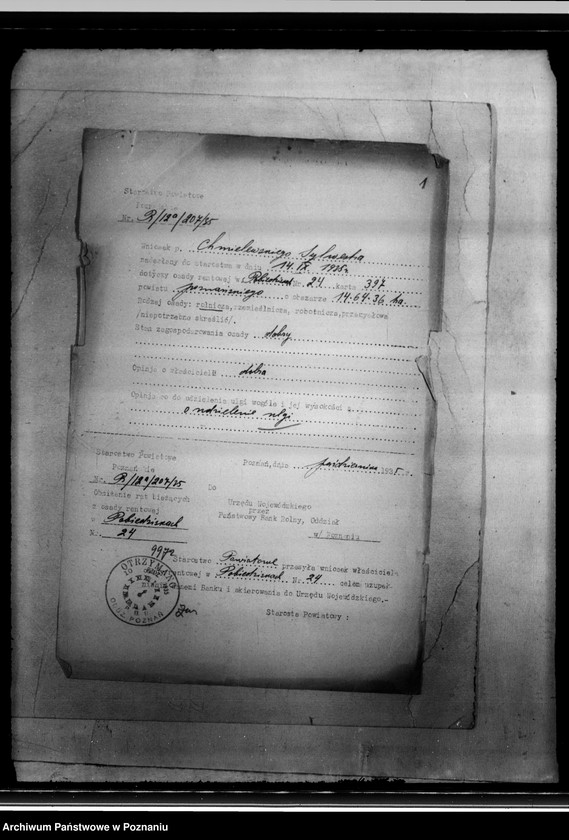 1
Starostwo Powiatowe
Nr. R/12a/207/35
Wniosek p. Chmielewskiego Sylwestra
nadesłany do Starostwa w dniu 14.IX. 1935 r.
dotyczy osady rentowej w Pobiedziskach Nr. 24 karta 397
powiatu poznańskiego o obszarze 14.64.36 ha.
Rodzaj osady: rolnicza, rzemieślnicza, robotnicza, przemysłowa
/niepotrzebne skreślić/.
Stan zagospodarowania osady dobry
Opinja o właścicielu dobra
Opinja co do udzielenia ulgi wogóle i jej wysokości
o udzielenie ulgi
Starostwo Powiatowe
Poznańskie
Nr. R/12a/207/35
Obniżanie rat bieżących
z osady rentowej
w Pobiedziskach
Nr. 24
Poznań, dnia października 1935 r.
Do
Urzędu Wojewódzkiego
przez
Państwowy Bank Rolny, Oddział
w/ Poznaniu
9972
Starostwo Powiatowe przesyła wniosek właściciela
rentowej w Pobiedziskach Nr. 24 celem uzupeł-
Banku i skierowania do Urzędu Wojewódzkiego.-
Starosta Powiatowy:
OTRZYMANO
ODDZ. POZNAŃ
Archiwum Państwowe w Poznaniu